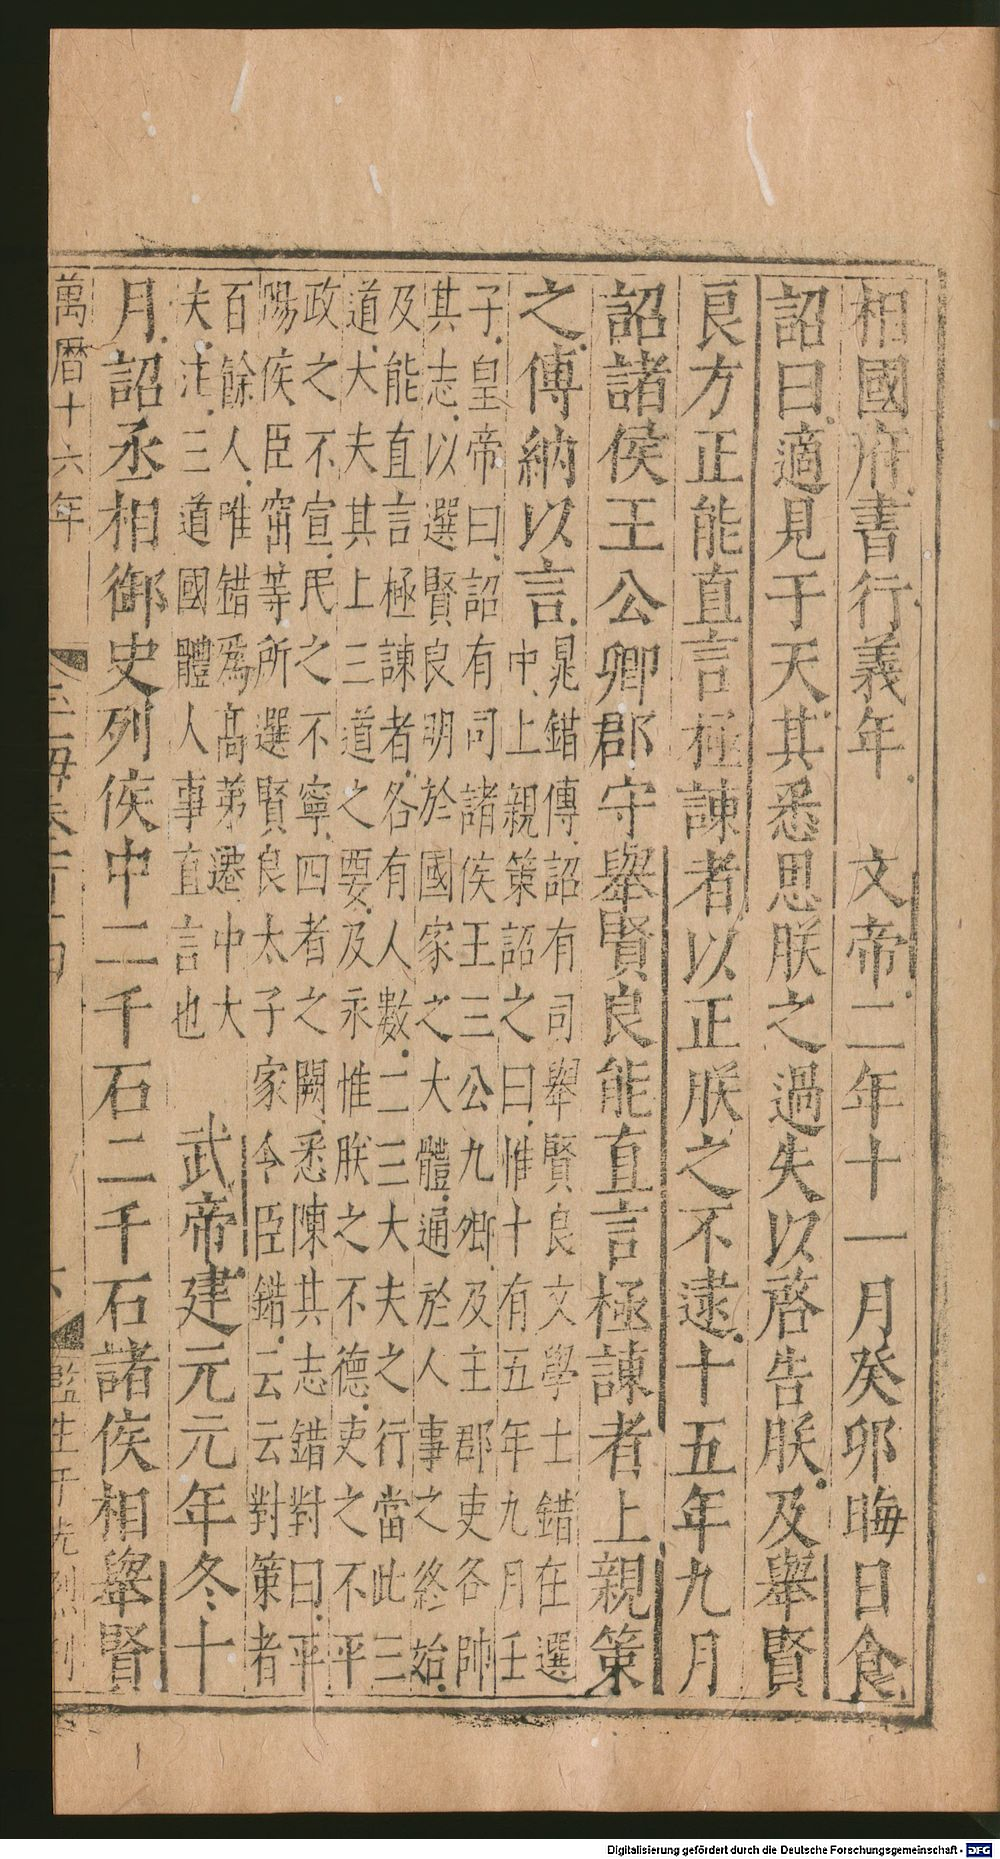 相國府書行義年　文帝二年十一月癸卯晦日食
詔曰適見于天其悉思朕之過失以啓告朕及舉賢
良方正能直言極諫者以正朕之不逮十五年九月
詔諸侯王公卿郡守舉賢良能直言極諫者上親策
之傅納以言
晁錯傳詔有司舉賢良文學士錯在選
中上親策詔之曰惟十有五年九月壬
子皇帝曰詔有司諸侯王三公九卿及主郡吏各帥
其志以選賢良明於國家之大體通於人事之終始
及能直言極諫者各有人數二三大夫之行當此三
道大夫其上三道之要及永惟朕之不德吏之不平
政之不宣民之不寧四者之闕悉陳其志錯對曰平
陽侯臣窋等所選賢良太子家令臣錯云云對策者
百餘人唯錯爲高第遷中大
夫注三道國體人事直言也
武帝建元元年冬十
月詔丞相御史列侯中二千石二千石諸侯相舉賢
萬曆十六年
玉海卷百
監生于光烈刊
Digitalisierung gefördert durch die Deutsche Forschungsgemeinschaft - DFG